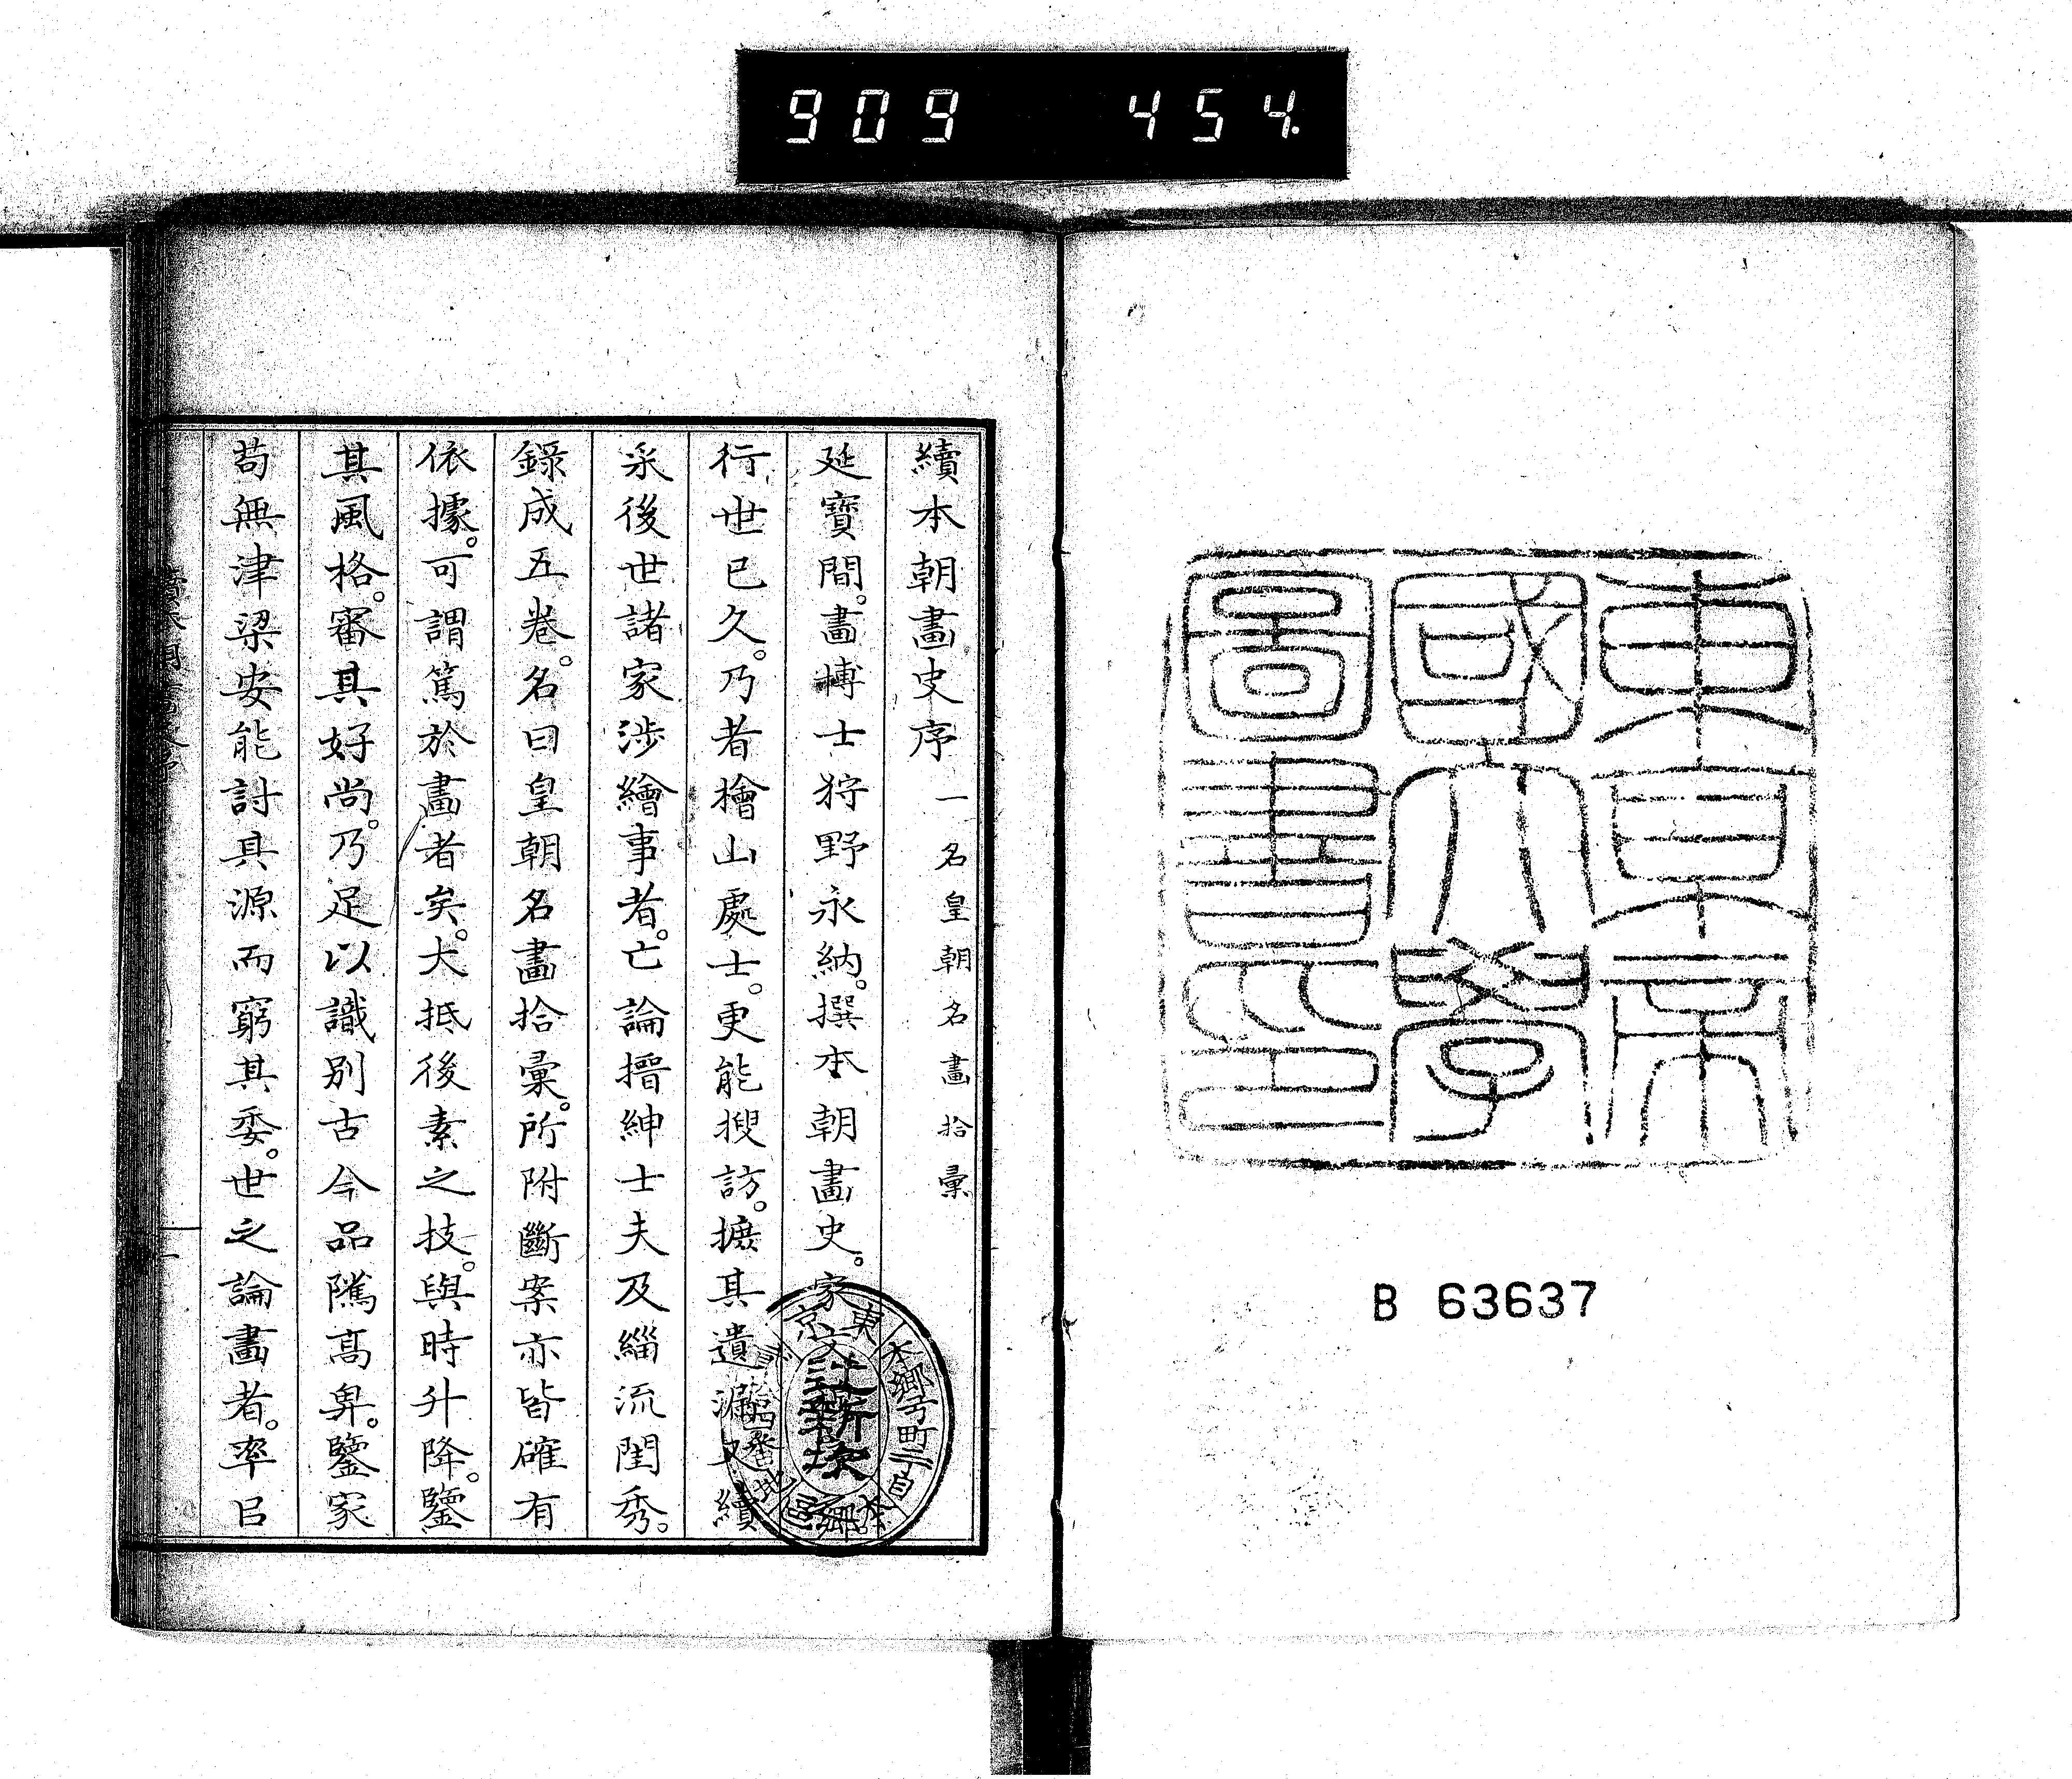 909 454.
東京帝
國大學
圖書之印
B 63637
續本朝畫史序 一名皇朝名畫拾彙
延寶間。畫博士狩野永納。撰本朝畫史。家
行世已久。乃者檜山處士。更能搜訪。摭其遺漏又續
采後世諸家涉繪事者。亡論搢紳士夫及緇流閨秀。
錄成五卷。名曰皇朝名畫拾彙。所附斷案亦皆確有
依據。可謂篤於畫者矣。大抵後素之技。與時升降。鑒
其風格。審其好尚。乃足以識別古今品隲高卑。鑒家
苟無津梁安能討其源而窮其委。世之論畫者。率㠯
東京
本鄉
番地